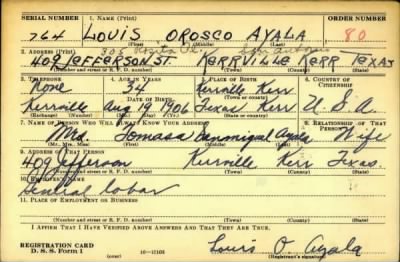 SERIAL NUMBER 1. NAME (Print) ORDER NUMBER
764 LOUIS OROSCO AYALA 80
(First) (Middle) (Last)
2. ADDRESS (Print) 305 San Antonio
409 JEFFERSON ST. KERRVILLE KERR TEXAS
(Number and street or R. F. D. number) (Town) (County) (State)
3. TELEPHONE 4. AGE IN YEARS 5. PLACE OF BIRTH 6. COUNTRY OF CITIZENSHIP
None 34 Kerrville Kerr
DATE OF BIRTH
Kerrville Aug 19 1906 Texas Kerr U. S. A
(Exchange) (Number) (Mo.) (Day) (Yr.) (State or country)
7. NAME OF PERSON WHO WILL ALWAYS KNOW YOUR ADDRESS 8. RELATIONSHIP OF THAT PERSON
Mrs. Tomasa Ayala Wife
(Mr., Mrs., Miss) (First) (Middle) (Last)
9. ADDRESS OF THAT PERSON
409 Jefferson Kerrville Kerr Texas.
(Number and street or R. F. D. number) (Town) (County) (State)
10. EMPLOYER'S NAME
11. PLACE OF EMPLOYMENT OR BUSINESS
(Number and street or R. F. D. number) (Town) (County) (State)
I AFFIRM THAT I HAVE VERIFIED ABOVE ANSWERS AND THAT THEY ARE TRUE.
REGISTRATION CARD
D. S. S. Form 1 (over) Louis O. Ayala
(Registrant's signature)